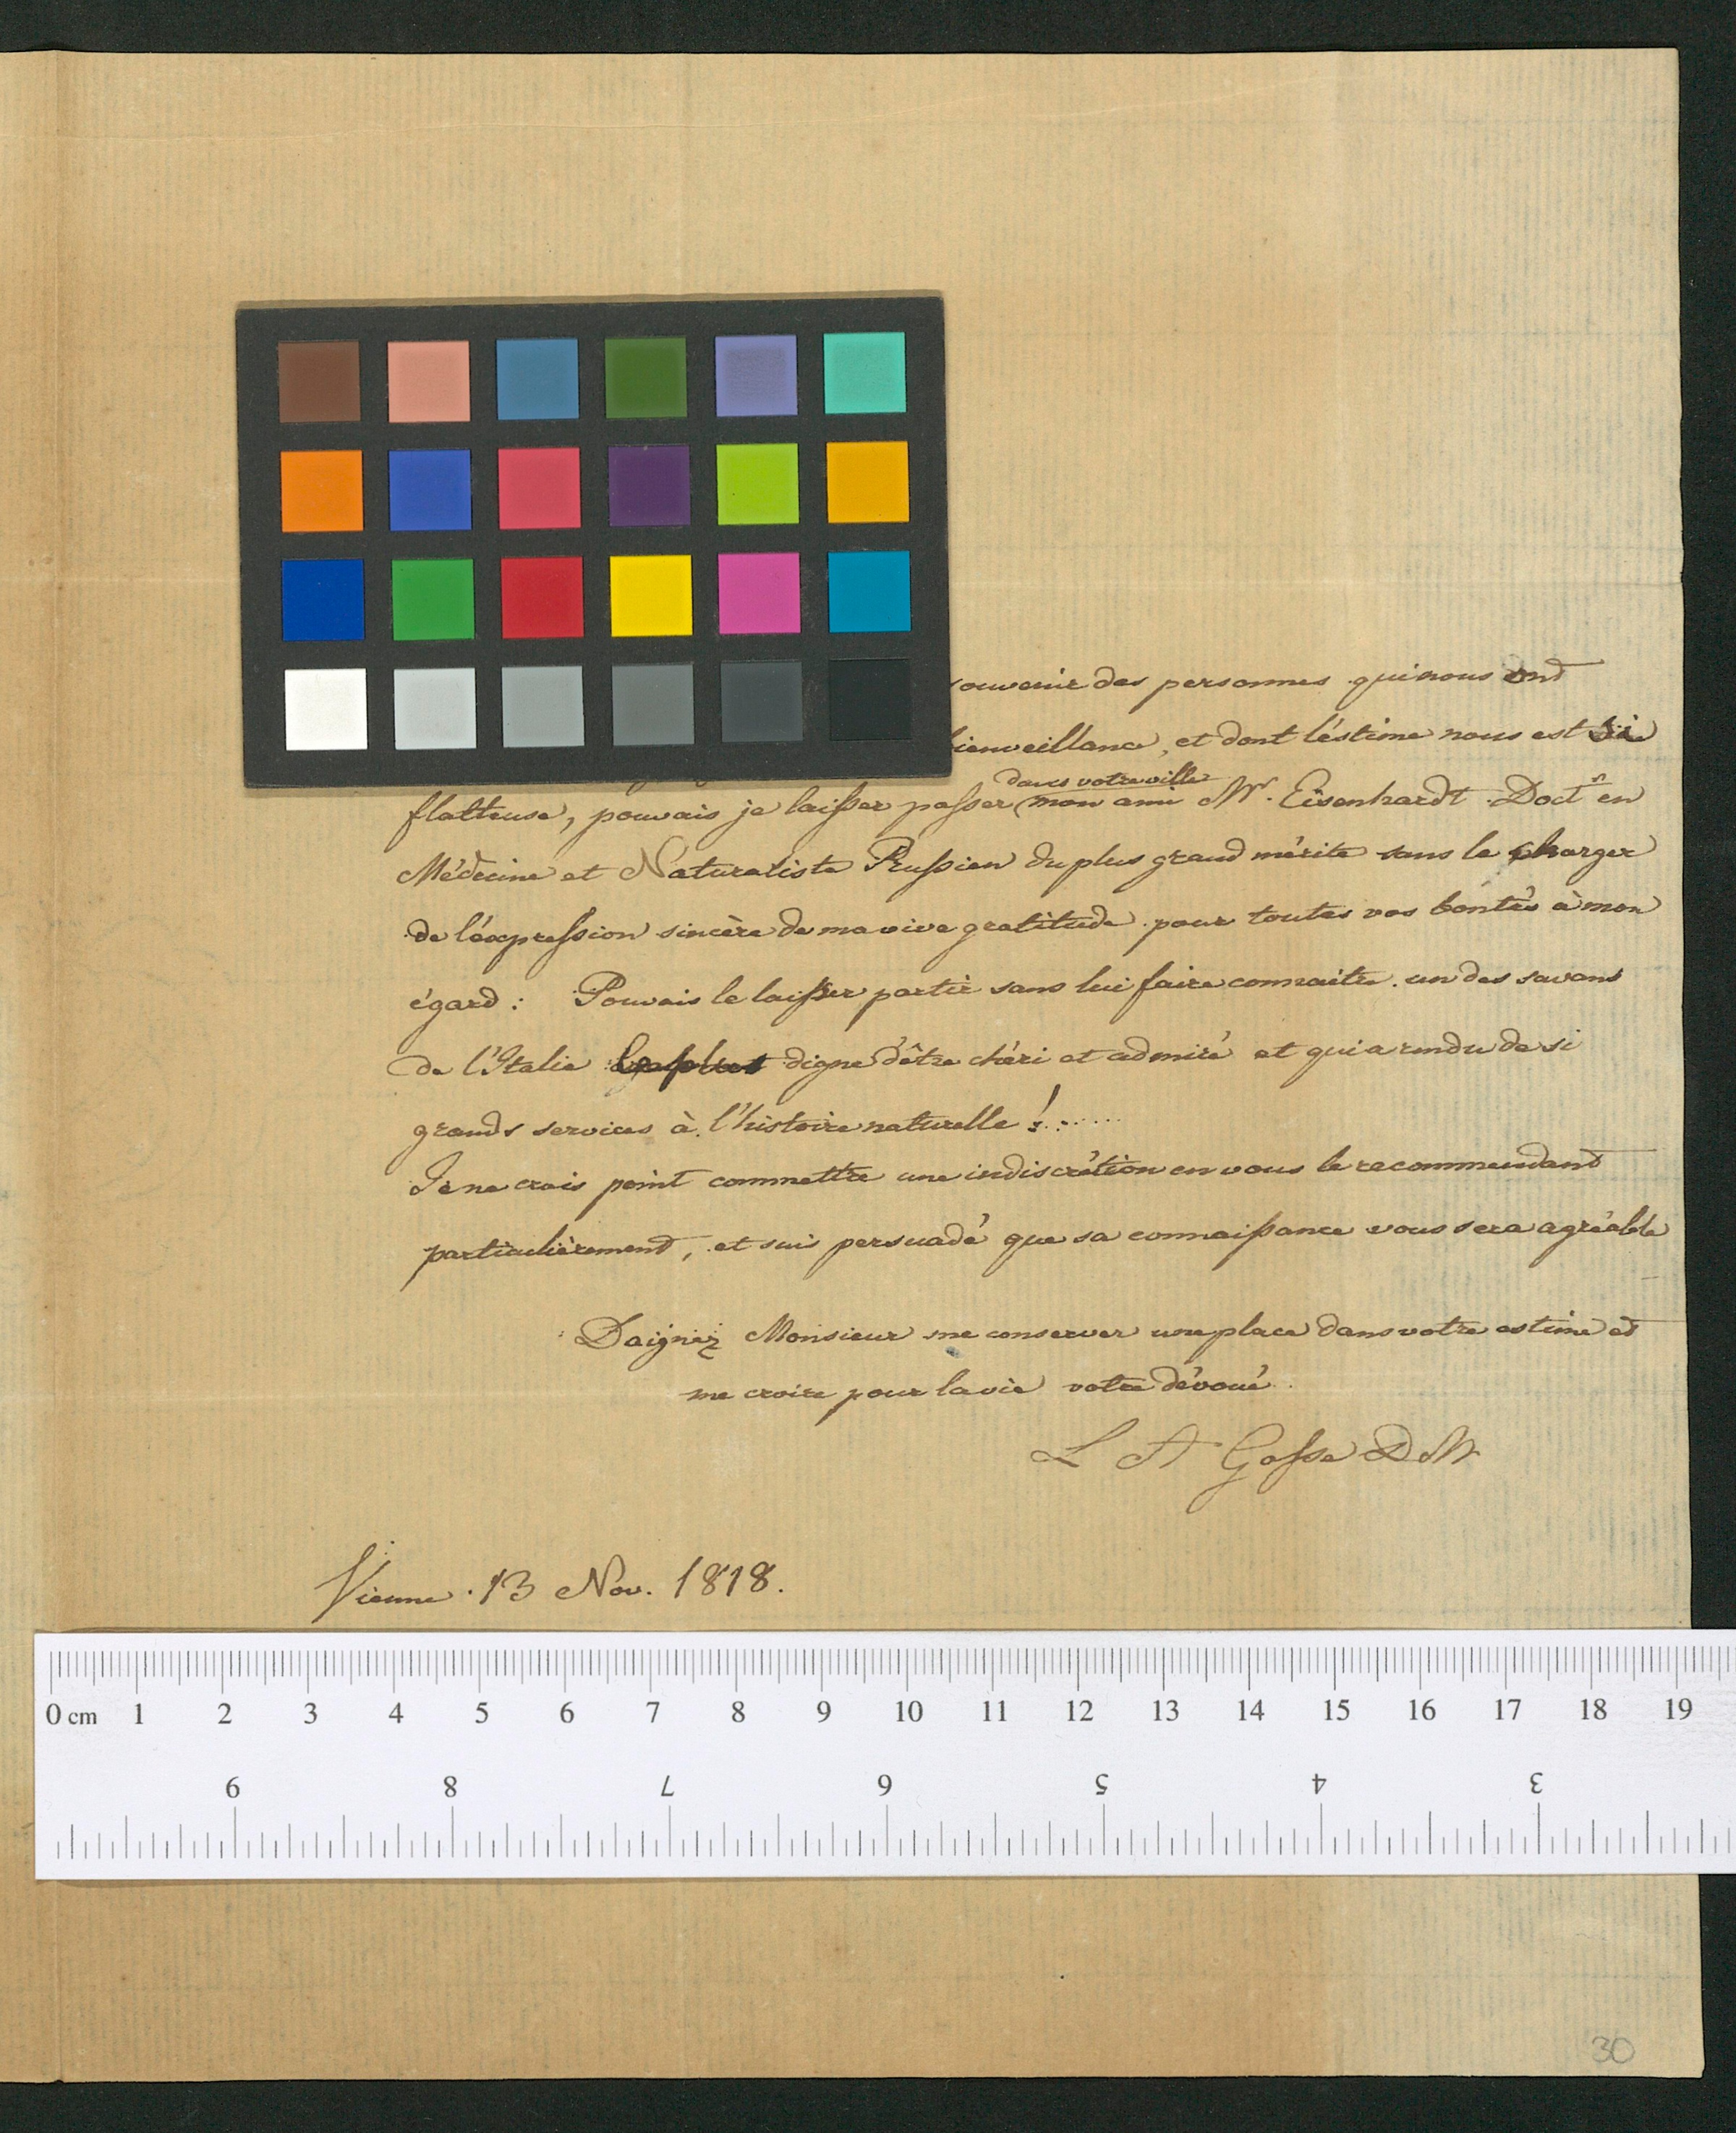 souvenir des personnes qui nous ont
bienveillance, et dont l'éstime nous est si
dans votre ville
flatteuse, pouvais je laisser passer (mon ami Mr. Eisenhardt Doctr en
Médecine et Naturaliste Prussien du plus grand mérite sans le charger
de l'éxpression sincère de ma vive gratitude pour toutes vos bontés à mon
égard : Pouvais le laisser partir sans lui faire connaitre un des savans
de l'Italie digne d'être chéri et admiré et qui a rendu de si
grands services à l'histoire naturelle !......
Je ne crois point commettre une indiscrétion en vous le recommendant
particulièrement, et suis persuadé que sa connaissance vous sera agréable
Daignez Monsieur me conserver une place dans votre estime et
me croire pour la vie votre dévoué
L A Gosse DM
Vienne . 13 Nov. 1818.
0 cm 1 2 3 4 5 6 7 8 9 10 11 12 13 14 15 16 17 18 19
9 8 7 6 5 4 3
30